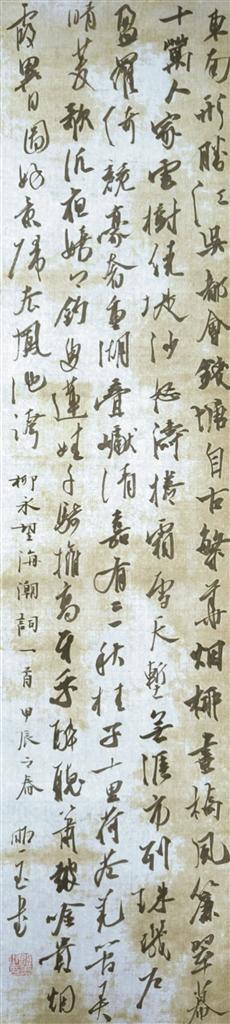 東南形勝江吳都會錢塘自古繁華烟柳畫橋風簾翠幕
十萬人家雲樹繞堤沙怒濤捲霜雪天塹無涯市列珠璣戶
盈羅綺競豪奢重湖疊巘清嘉有三秋桂子十里荷花羌管弄
晴菱歌泛夜嬉々釣叟蓮娃千騎擁高牙乘醉聽簫鼓吟賞烟
霞異日圖好景歸去鳳池誇 柳永望海潮詞一首 甲辰之春 玉書